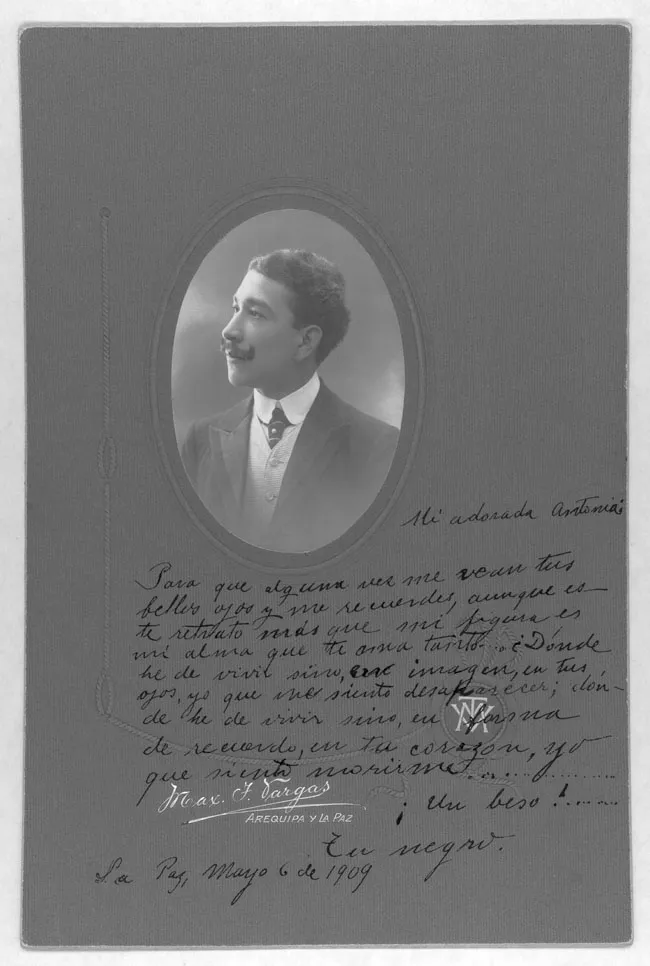 Mi adorada Antonia:
Para que alguna vez me vean tus
bellos ojos y me recuerdes, aunque es-
te retrato más que mi figura es
mi alma que te ama tanto. ¿Dónde
he de vivir sino, en imagen, en tus
ojos, yo que me siento desaparecer; dón-
de he de vivir sino, en forma
de recuerdo, en tu corazón, yo
que siento morirme...............
Max. T. Vargas
AREQUIPA Y LA PAZ
¡Un beso!......
Tu negro.
La Paz, Mayo 6 de 1909